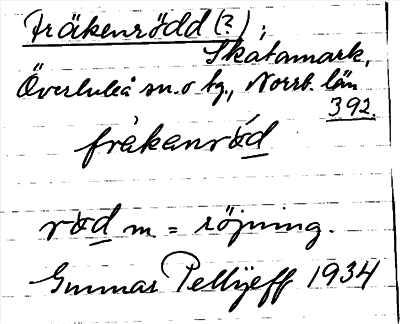 Fräkenrödd (?);
Skatamark,
Överluleå sn. o tg., Norrb. län
392.
fräkanrød
rød m = röjning.
Gunnar Pellijeff 1934